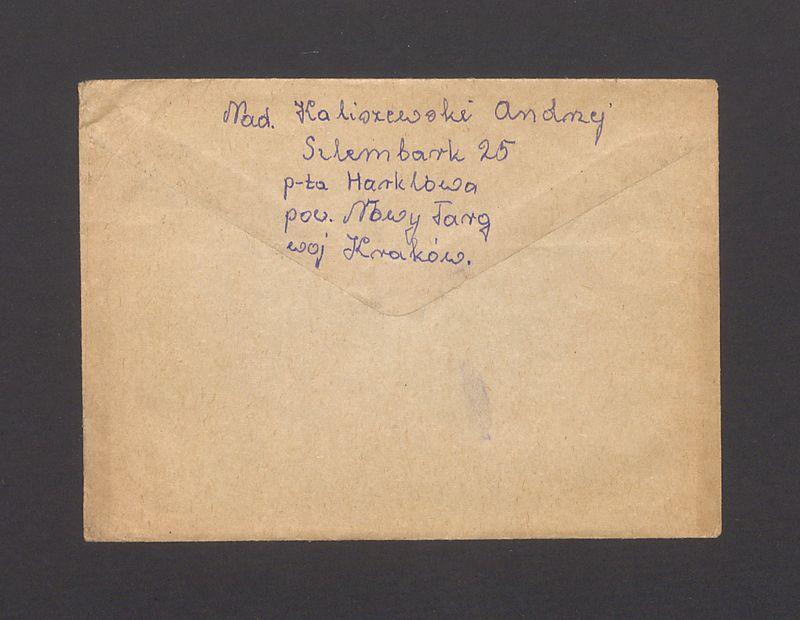 Nad. Kaliszewski Andrzej
Szlembark 25
p-ta Harklowa
pow. Nowy Targ
woj Kraków.